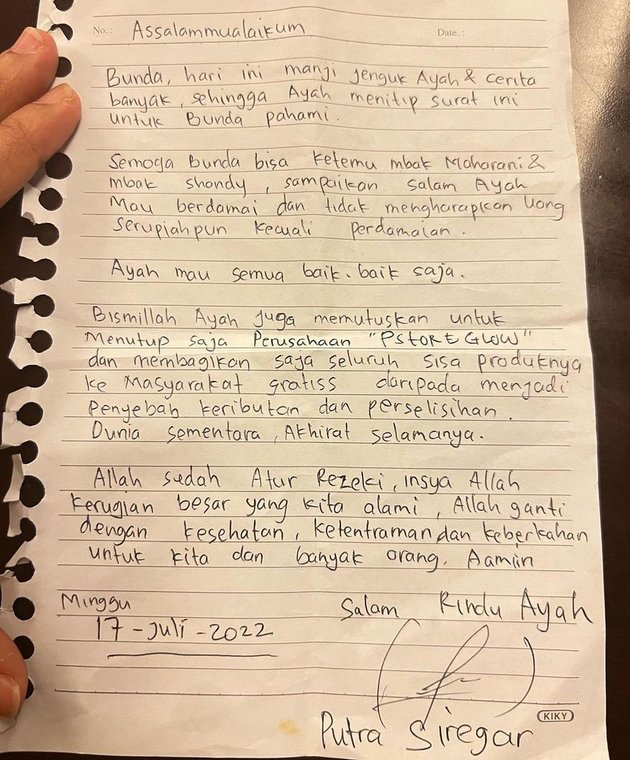 No.: Assalammualaikum Date.:
Bunda, hari ini manji jenguk Ayah & cerita
banyak, sehingga Ayah menitip surat ini
untuk Bunda pahami.
Semoga Bunda bisa ketemu mbak Maharani &
mbak shandy, sampaikan salam Ayah
Mau berdamai dan tidak mengharapkan Uang
serupiahpun kecuali perdamaian.
Ayah mau semua baik-baik saja.
Bismillah Ayah juga memutuskan untuk
Menutup saja Perusahaan "PSTORE GLOW"
dan membagikan saja seluruh sisa produknya
ke Masyarakat gratiss daripada menjadi
Penyebab keributan dan perselisihan.
Dunia sementara, Akhirat selamanya.
Allah sudah Atur Rezeki, insya Allah
Kerugian besar yang kita alami, Allah ganti
dengan kesehatan, ketentraman dan keberkahan
untuk kita dan banyak orang. Aamiin
Minggu
17-Juli-2022
Salam Rindu Ayah
KIKY
Putra Siregar